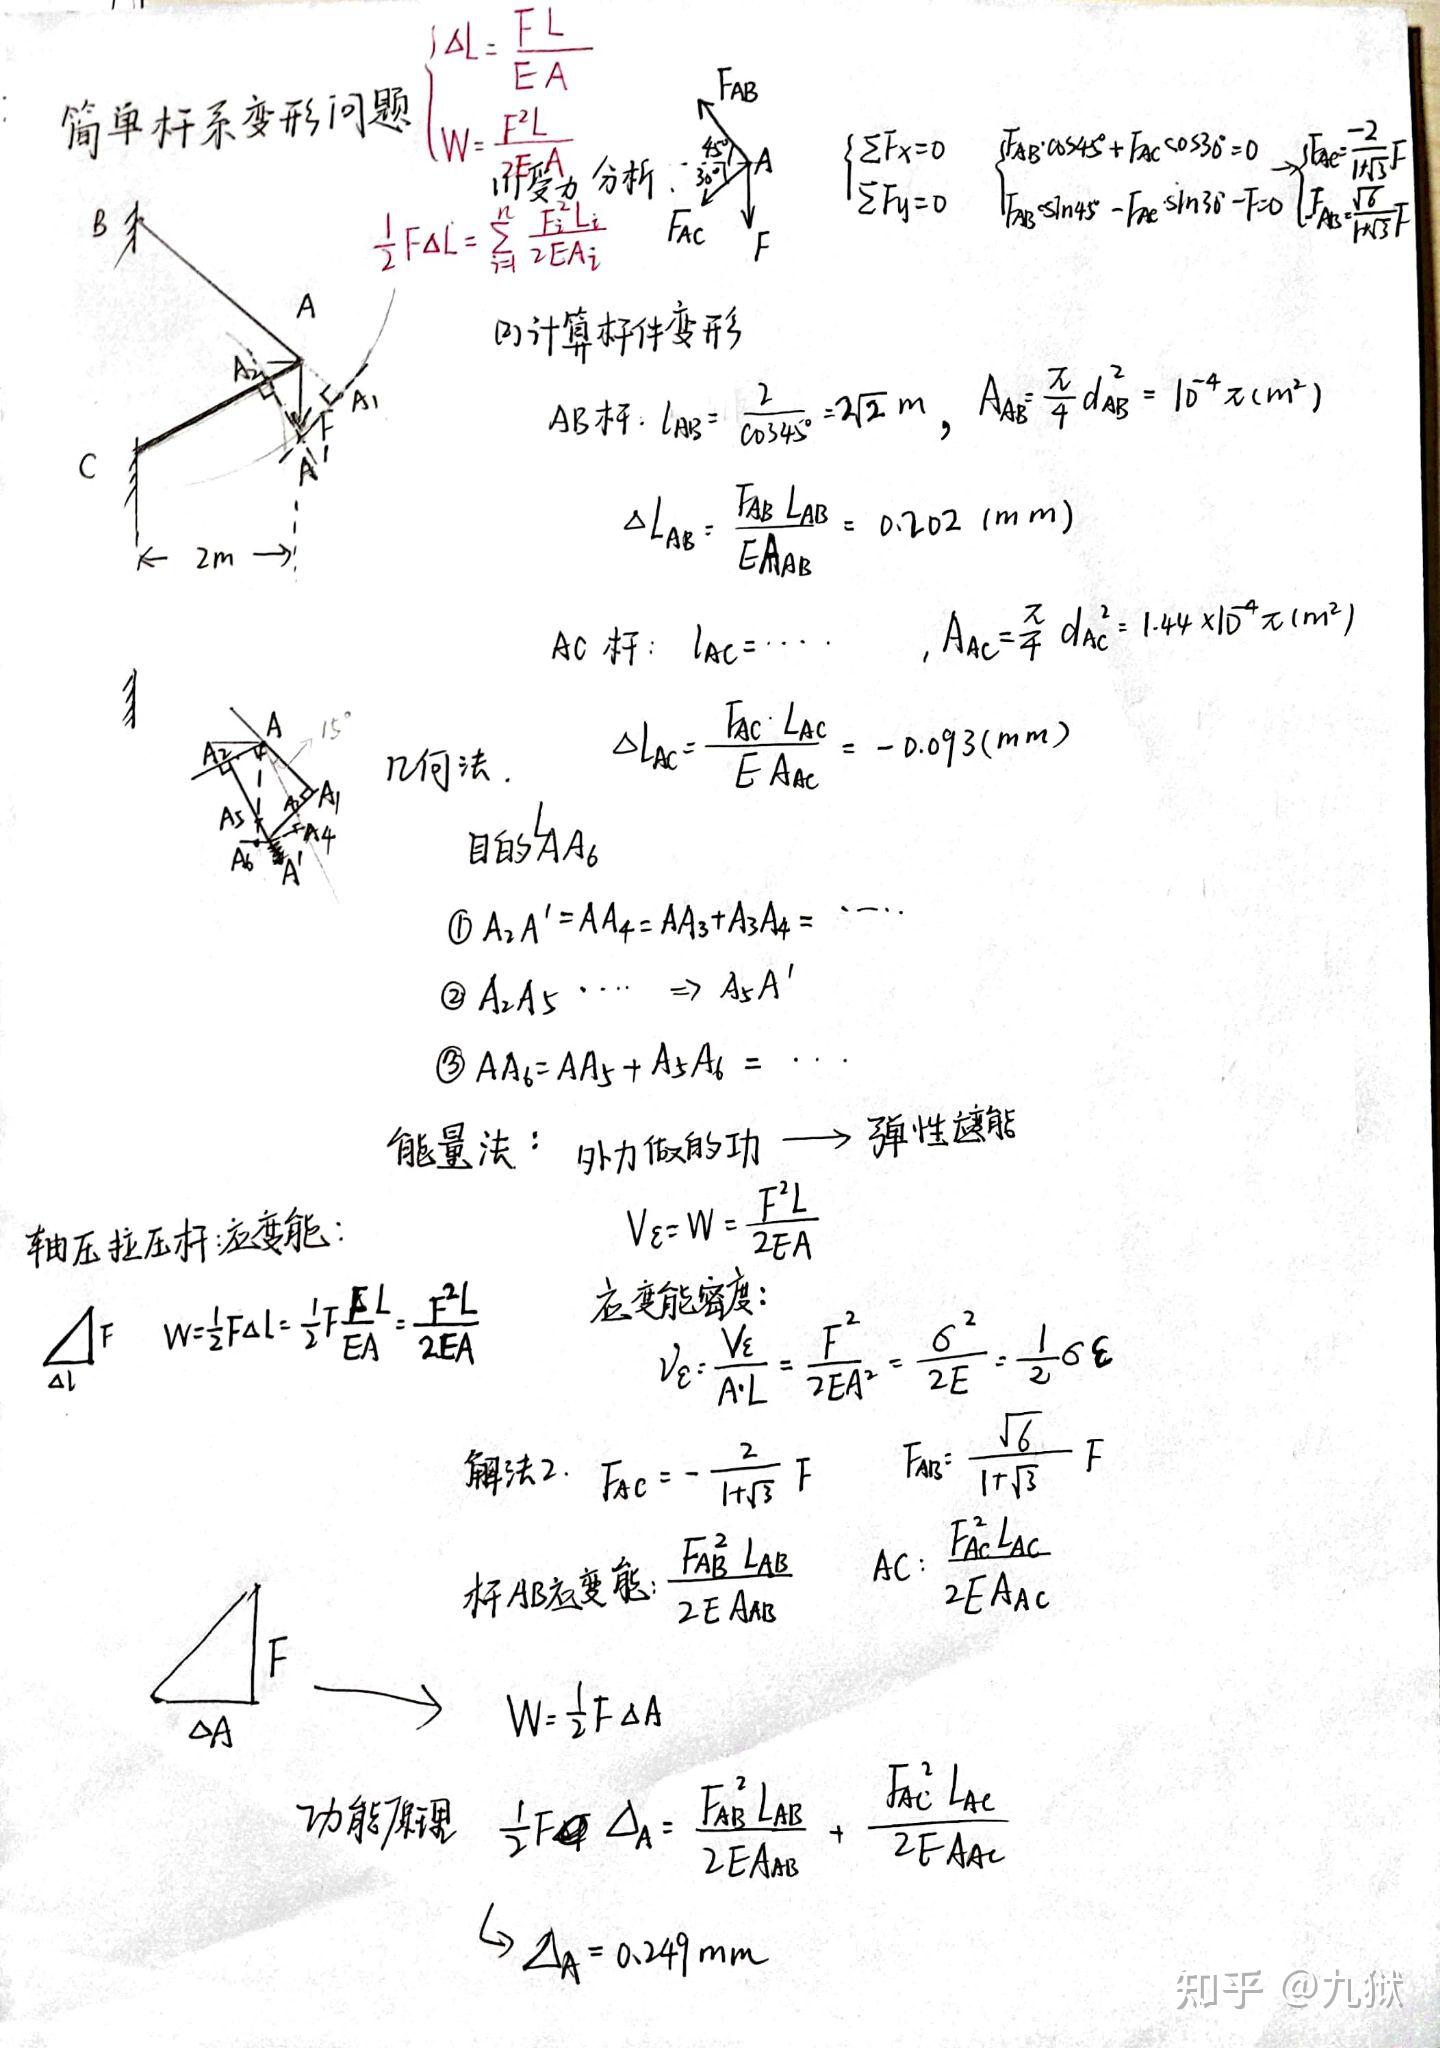 简单杆系变形问题
{ΔL = FL/EA
W = F²L/2EA
½FΔL = Σ(i=1→n) Fi²Li/2EAi
(1)受力分析:
FAB
45°
30°
A
FAC
F
{ΣFx=0
ΣFy=0
{FAB·cos45°+FAC cos30°=0
FAB·sin45°-FAC·sin30°-F=0
→{FAC=-2/(1+√3) F
FAB=√6/(1+√3) F
B
A
A2
A1
F
A'
C
2m
(2)计算杆件变形
AB杆: lAB = 2/cos45° = 2√2 m, AAB = π/4 dAB² = 10⁻⁴π(m²)
ΔLAB = FAB LAB/EAAB = 0.202 (mm)
AC杆: lAC = ····, AAC = π/4 dAC² = 1.44×10⁻⁴π(m²)
ΔLAC = FAC·LAC/EAAC = -0.093(mm)
A
15°
A2
A1
A5
A3
A4
A6
A'
几何法.
目的LAA6
① A2A' = AA4 = AA3+A3A4 = ·····
② A2A5 ···· ⇒ A5A'
③ AA6 = AA5 + A5A6 = ···
能量法: 外力做的功 → 弹性应能
Vε = W = F²L/2EA
轴压拉压杆:应变能:
F
Δl
W=½FΔl=½F FL/EA = F²L/2EA
应变能密度:
vε = Vε/A·L = F²/2EA² = σ²/2E = ½σε
解法2. FAC = -2/(1+√3) F FAB = √6/(1+√3) F
杆AB应变能: FAB²LAB/2EAAB AC: FAC²LAC/2EAAC
F
ΔA
→ W=½FΔA
功能原理 ½F ΔA = FAB²LAB/2EAAB + FAC²LAC/2EAAC
↳ ΔA = 0.249mm
知乎 @九狱